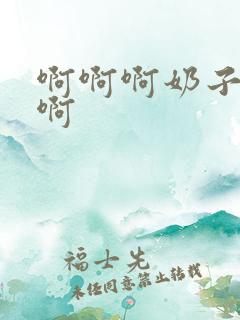 啊啊啊奶子
啊
福士先
未经同意禁止转载